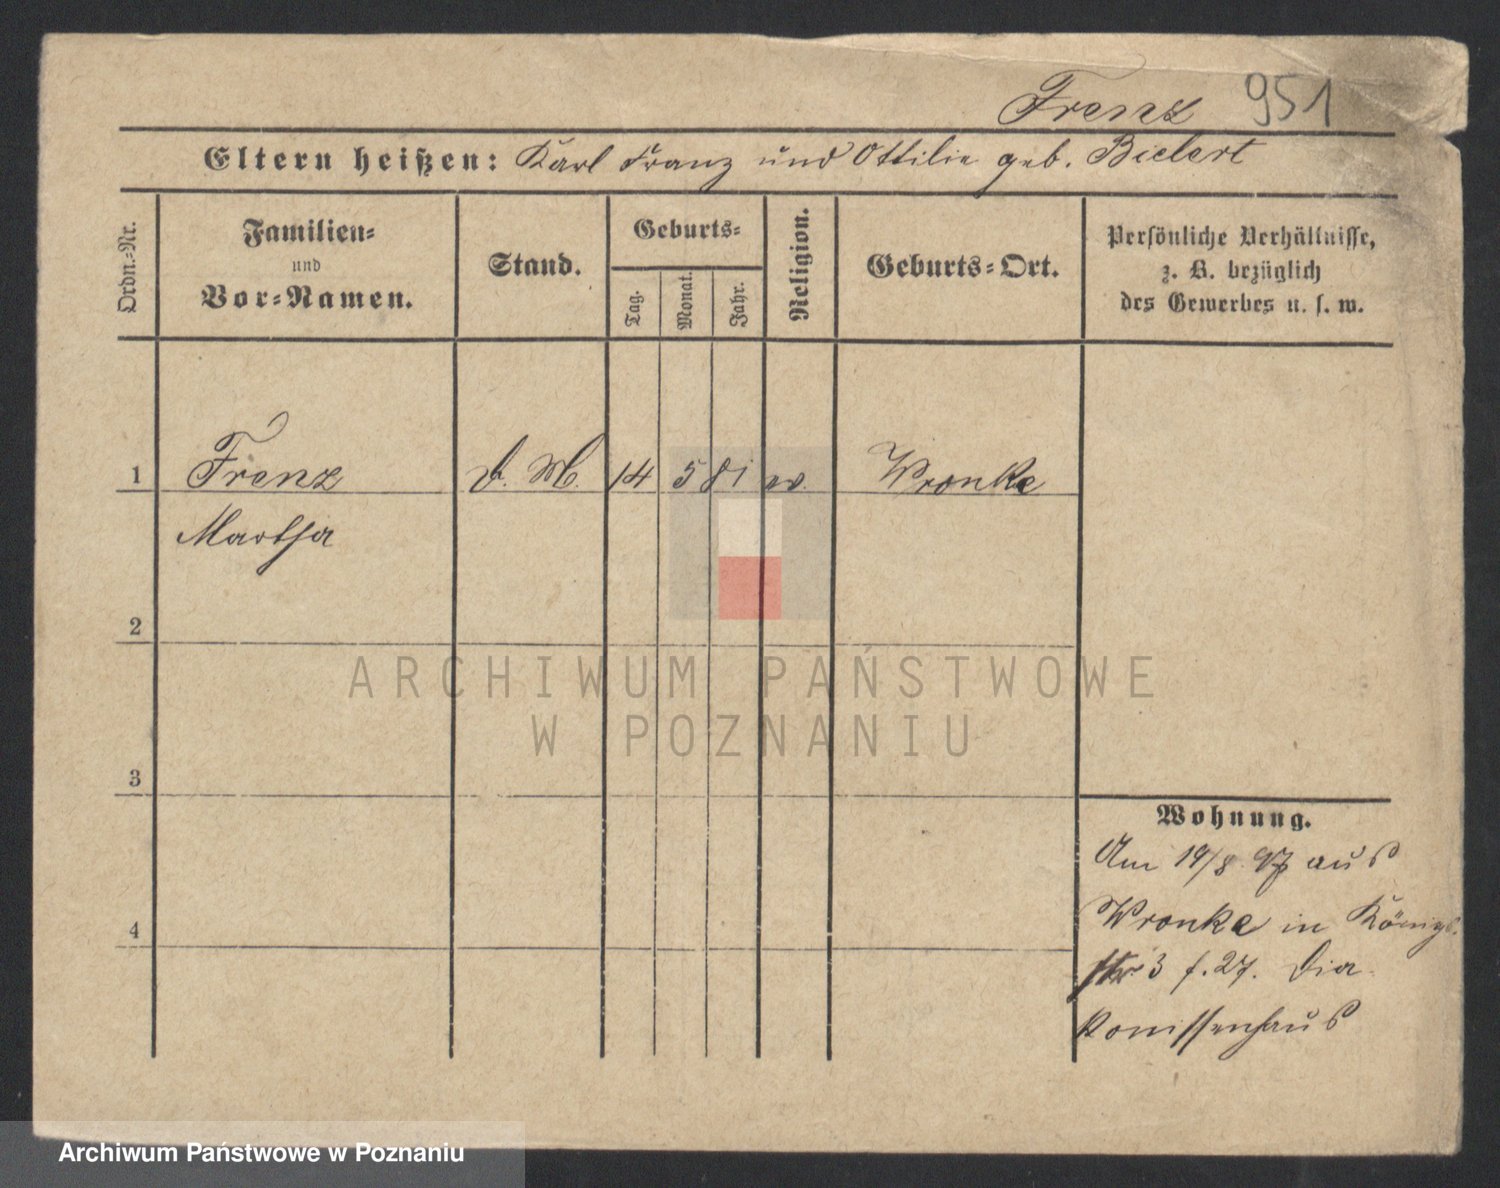 Frenz 951
Eltern heißen: Karl Franz und Ottilie geb. Bielert
Ordn.-Nr.
Familien-
und
Vor-Namen.
Stand.
Geburts-
Tag.
Monat.
Jahr.
Religion.
Geburts-Ort.
Persönliche Verhältnisse,
z. B. bezüglich
des Gewerbes u. s. w.
1 Frenz D. M. 14 5 81 ev. Wronke
Martha
2
3
4
Wohnung.
Am 19/8 97 aus
Wronke in Königs.
str. 3 f. 27. Dia-
konissenhaus
ARCHIWUM PAŃSTWOWE
W POZNANIU
Archiwum Państwowe w Poznaniu